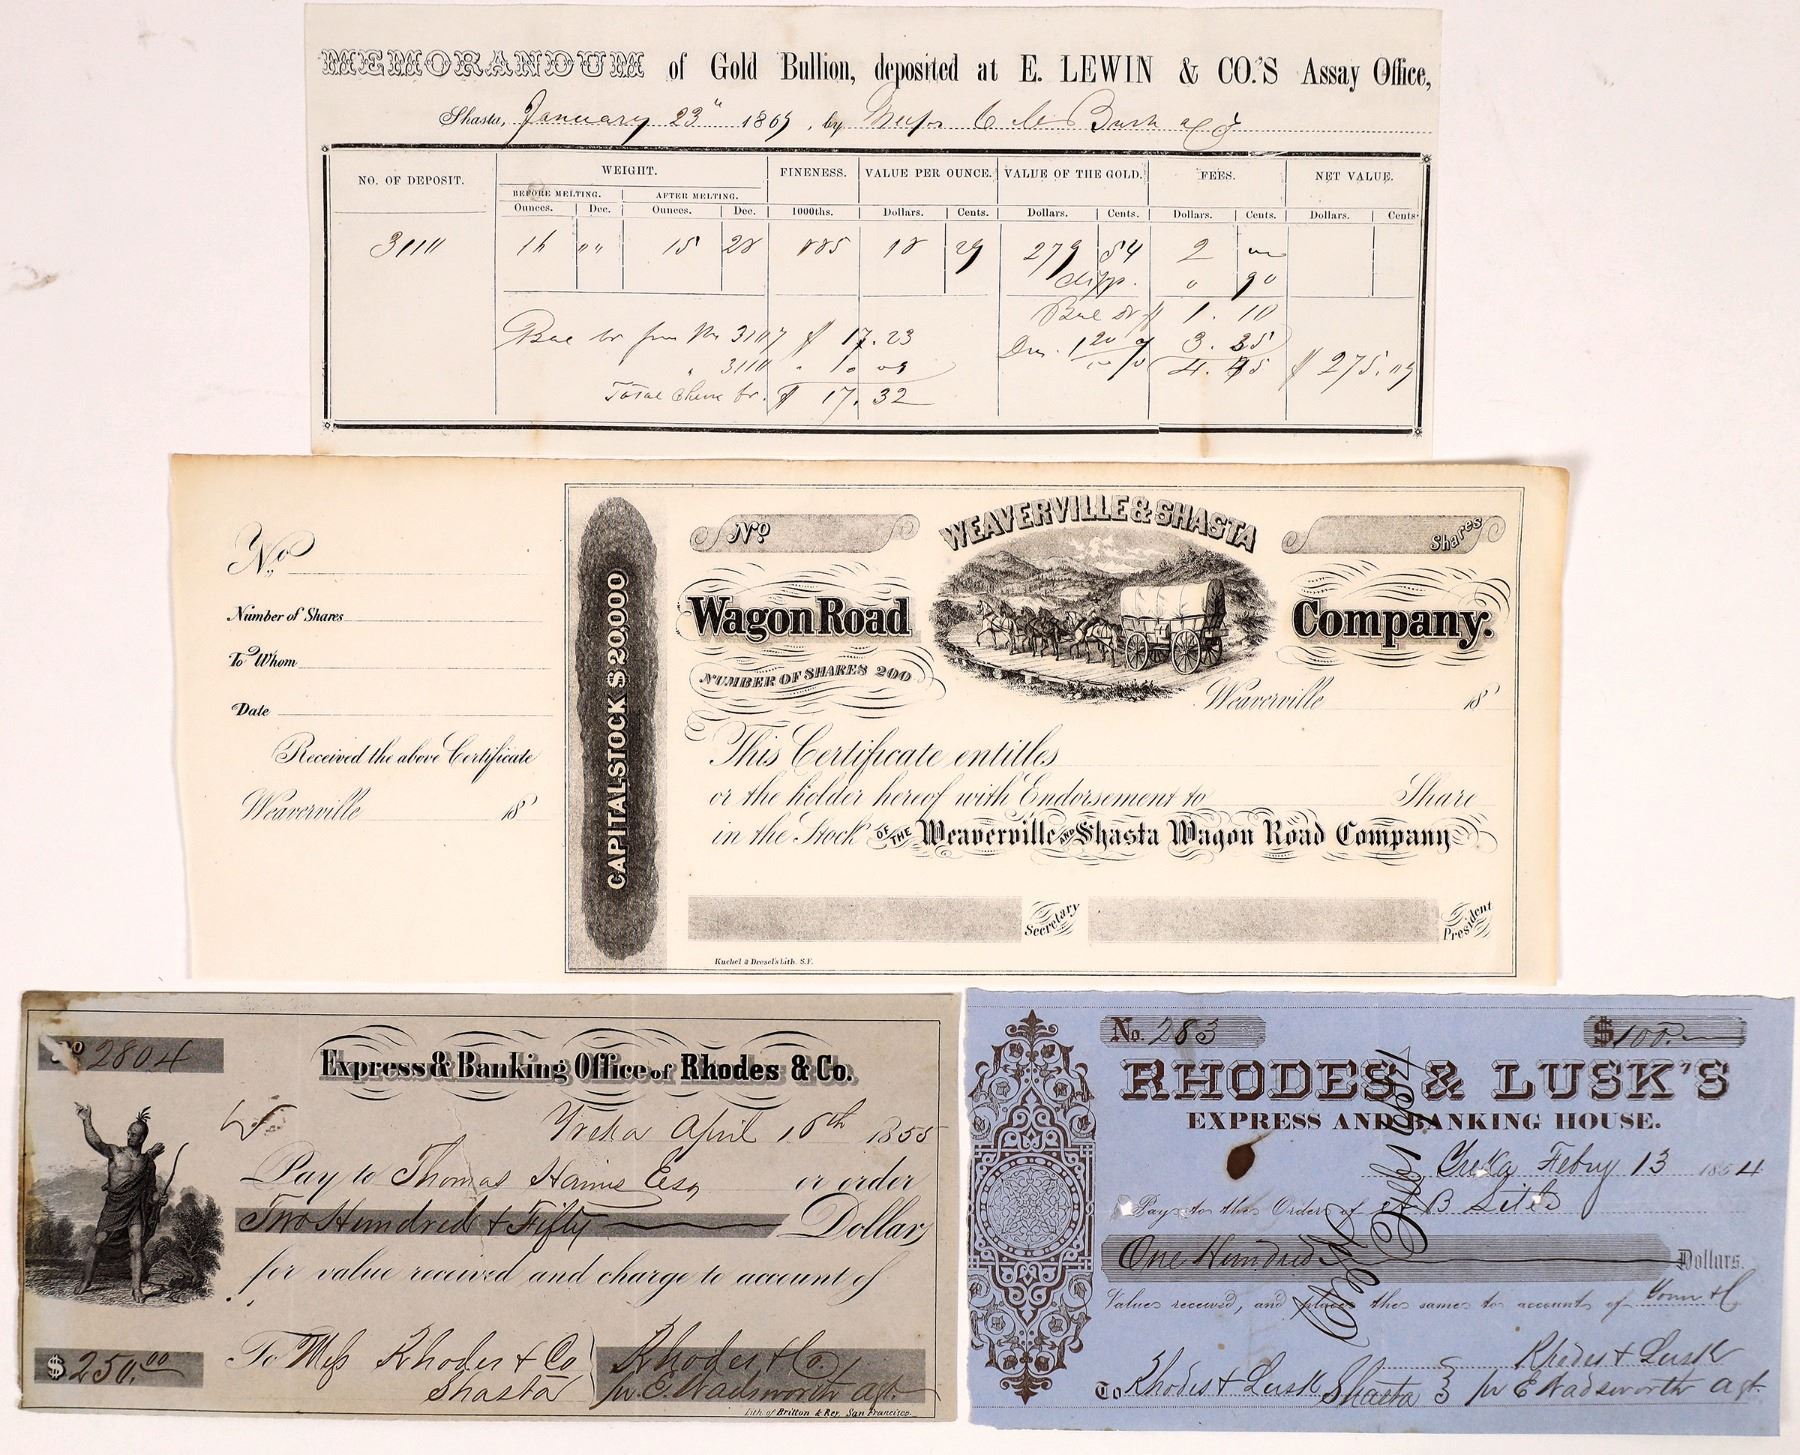 MEMORANDUM of Gold Bullion, deposited at E. LEWIN & CO.'S Assay Office,
Shasta, January 23" 186 , by C Bush
NO. OF DEPOSIT. WEIGHT. FINENESS. VALUE PER OUNCE. VALUE OF THE GOLD. FEES. NET VALUE.
BEFORE MELTING. AFTER MELTING.
Ounces. Dec. Ounces. Dec. 1000ths. Dollars. Cents. Dollars. Cents. Dollars. Cents. Dollars. Cents.
3110 16 " " 15 28 885 18 29 279 54 2
90
1.10
3107 $ 17.23 3.35
3110 " 0 09 4.45 $ 275.09
Total $ 17.32
No
Number of Shares
To Whom
Date
Received the above Certificate
Weaverville 18
CAPITAL STOCK $20,000
No WEAVERVILLE & SHASTA Shares
Wagon Road Company.
NUMBER OF SHARES 200
Weaverville 18
This Certificate entitles
or the holder hereof with Endorsement to Share
in the Stock OF THE Weaverville AND Shasta Wagon Road Company
Secretary President
Kuchel & Dresel's Lith. S.F.
No 2804
Express & Banking Office of Rhodes & Co.
Yreka April 16th 1855
Pay to Thomas Haines Esq or order
Two Hundred & Fifty Dollars
for value received and charge to account of
$ 250.00 To Mess Rhodes & Co Rhodes & Co.
Shasta pr E. Wadsworth agt
Lith. of Britton & Rey, San Francisco.
No. 283 $ 100.
RHODES & LUSK'S
EXPRESS AND BANKING HOUSE.
Yreka Febry 13 1854
Pay to the Order of B
One Hundred Dollars.
Value received, and place the same to account of Yours &c
Rhodes & Lusk
To Rhodes & Lusk Shasta pr E Wadsworth agt.